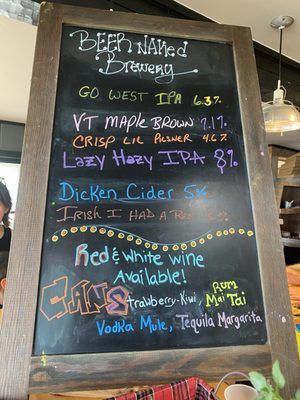 BEER NAked
Brewery
GO WEST IPA 6.3%
VT MAPLE BROWN 7.1%
CRISP LIL PILZNER 4.6%
LAZY HAZY IPA 8%
Dicken Cider 5%
IRISH I HAD A
Red & White wine
Available!
CANS
Strawberry-Kiwi, Rum
Mai Tai
Vodka Mule, Tequila Margarita